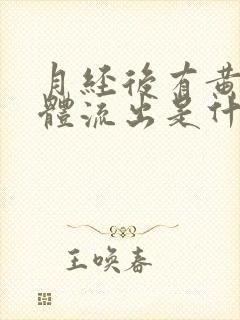 月経後有黃
體流出是什
王喚春